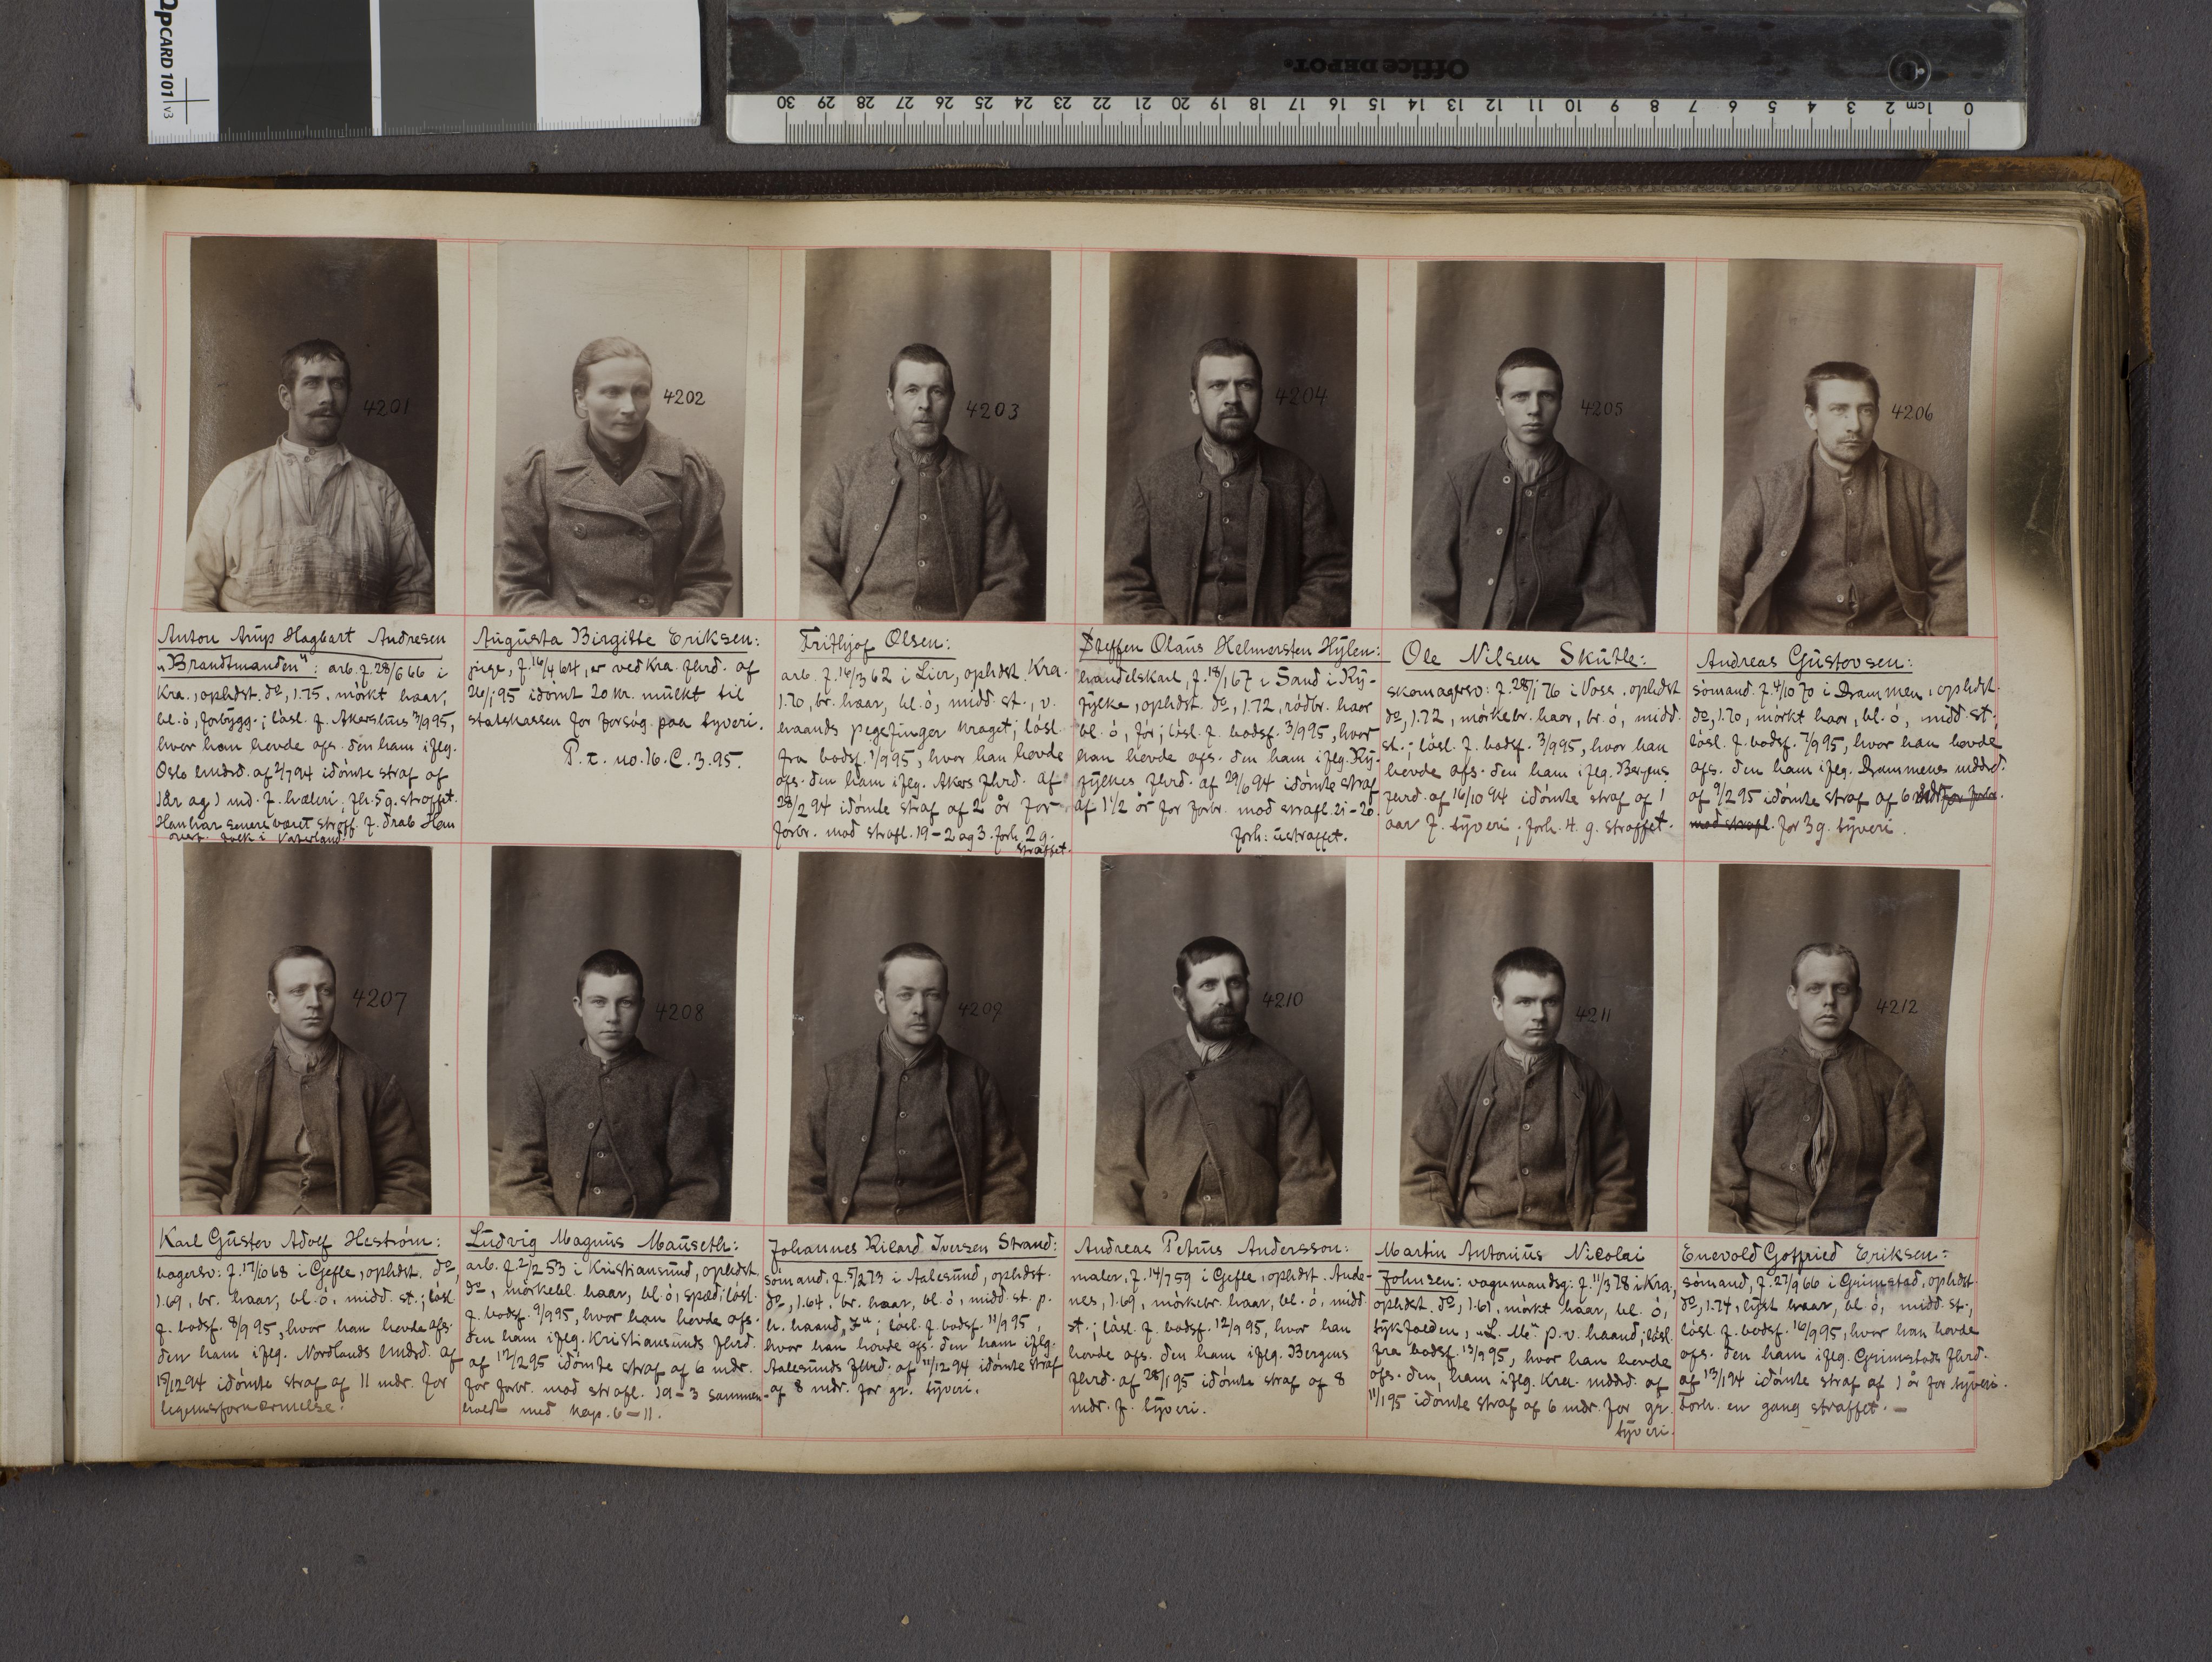 OpCARD 101 v3
Office DEPOT.
0 1 cm 2 3 4 5 6 7 8 9 10 11 12 13 14 15 16 17 18 19 20 21 22 23 24 25 26 27 28 29 30
4201
4202
4203
4204
4205
4206
Anton Arup Hagbart Andresen
"Brandtmanden": arb. f. 28/6 66 i
Kra., ophdst. do, 1.75, mörkt haar,
bl. ö, forbygg.; lösl. f. Akershus 3/9 95,
hvor han hevde afs. den ham iflg.
Oslo mdrd. af 2/7 94 idömte straf af
1 år og 1 md. f. hæleri; fh. 5 g. straffet.
Han har senere været straff. f. drab Han
overf. folk i Vaterland.
Augusta Birgitte Eriksen:
pige, f. 16/4 64, er ved Kra. fhrd. af
26/1 95 idömt 20 kr. mulkt til
statskassen for forsög paa tyveri.
P. t. no. 16. C. 3. 95.
Frithjof Olsen:
arb. f. 16/3 62 i Lier, ophdst. Kra.
1.70, br. haar, bl. ö, midd. st., v.
haands pegefinger kraget; lösl.
fra bodsf. 1/9 95, hvor han hevde
afs. den ham iflg. Akers fhrd. af
28/2 94 idömte straf af 2 år for
forbr. mod strafl. 19-2 og 3. forh. 2 g.
straffet.
Steffen Olaus Helmersten Hylen:
handelskarl, f. 18/1 67 i Sand i Ry-
fylke, ophdst. do, 1.72, rödbr. haar
bl. ö, för; lösl. f. bodsf. 3/9 95, hvor
han hevde afs. den ham iflg. Ry-
fylkes fhrd. af 29/6 94 idömte straf
af 1 1/2 år for forbr. mod strafl. 21-20.
forh: ustraffet.
Ole Nilsen Skutle:
skomagersv: f. 28/1 76 i Voss, ophdst
do, 1.72, mörkebr. haar, br. ö, midd.
st.; lösl. f. bodsf. 3/9 95, hvor han
hevde afs. den ham iflg. Bergens
fhrd. af 16/10 94 idömte straf af 1
aar f. tyveri; forh. 4. g. straffet.
Andreas Gustavsen:
sömand. f. 4/10 70 i Drammen, ophdst.
do, 1.70, mörkt haar, bl. ö, midd. st.
lösl. f. bodsf. 7/9 95, hvor han hevde
afs. den ham iflg. Drammens mddrd.
af 9/2 95 idömte straf af 6 mdr for forbr.
mod strafl. for 3 g. tyveri.
4207
4208
4209
4210
4211
4212
Karl Gustav Adolf Heström:
bagersv: f. 17/10 68 i Gefle, ophdst. do,
1.69, br. haar, bl. ö, midd. st.; lösl.
f. bodsf. 8/9 95, hvor han hevde afs.
den ham iflg. Nordlands lmdrd. af
15/12 94 idömte straf af 11 mdr. for
legemsfornærmelse.
Ludvig Magnus Mauseth:
arb. f. 2/2 53 i Kristiansund, ophdst.
do, mörkebl. haar, bl. ö, spæd; lösl.
f. bodsf. 9/9 95, hvor han hevde afs.
den ham iflg. Kristiansunds fhrd.
af 12/2 95 idömte straf af 6 mdr.
for forbr. mod strafl. 19-3 sammen-
holdt med kap. 6-11.
Johannes Rikard Iversen Strand:
sömand, f. 5/2 73 i Aalesund, ophdst.
do, 1.64, br. haar, bl. ö, midd. st. p.
h. haand "I"; lösl. f. bodsf. 11/9 95,
hvor han hovde afs. den ham iflg.
Aalesunds fhrd. af 11/12 94 idömte straf
af 8 mdr. for gr. tyveri.
Andreas Petrus Andersson:
maler, f. 14/7 59 i Gefle, ophdst. Ande-
nes, 1.69, mörkebr. haar, bl. ö, midd.
st.; lösl. f. bodsf. 12/9 95, hvor han
hovde afs. den ham iflg. Bergens
fhrd. af 28/1 95 idömte straf af 8
mdr. f. tyveri.
Martin Antonius Nicolai
Johnsen: vognmandsg: f. 11/3 78 i Kra.,
ophdst. do, 1.61, mörkt haar, bl. ö,
tykfalden, "L. M." p. v. haand; lösl.
fra bodsf. 13/9 95, hvor han hevde
afs. den ham iflg. Kra. mddrd. af
11/1 95 idömte straf af 6 mdr. for gr.
tyveri.
Enevold Gotfried Eriksen:
sömand, f. 27/9 66 i Grimstad, ophdst.
do, 1.74, lyst haar, bl. ö, midd. st.,
lösl. f. bodsf. 16/9 95, hvor han hovde
afs. den ham iflg. Grimstads fhrd.
af 13/1 94 idömte straf af 1 år for tyveri.
Forh. en gang straffet. —